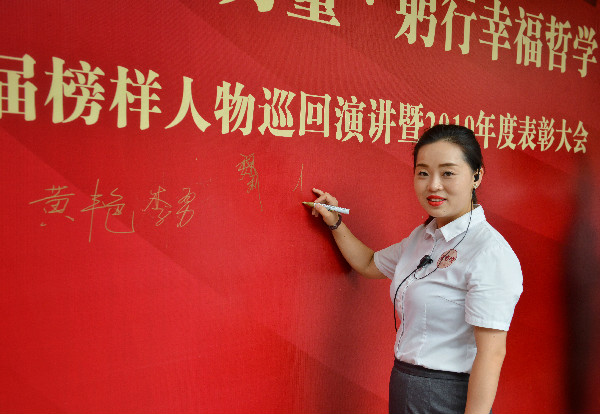 重·躬行幸福哲学
届榜样人物巡回演讲暨2019年度表彰大会
黄艳 李勇